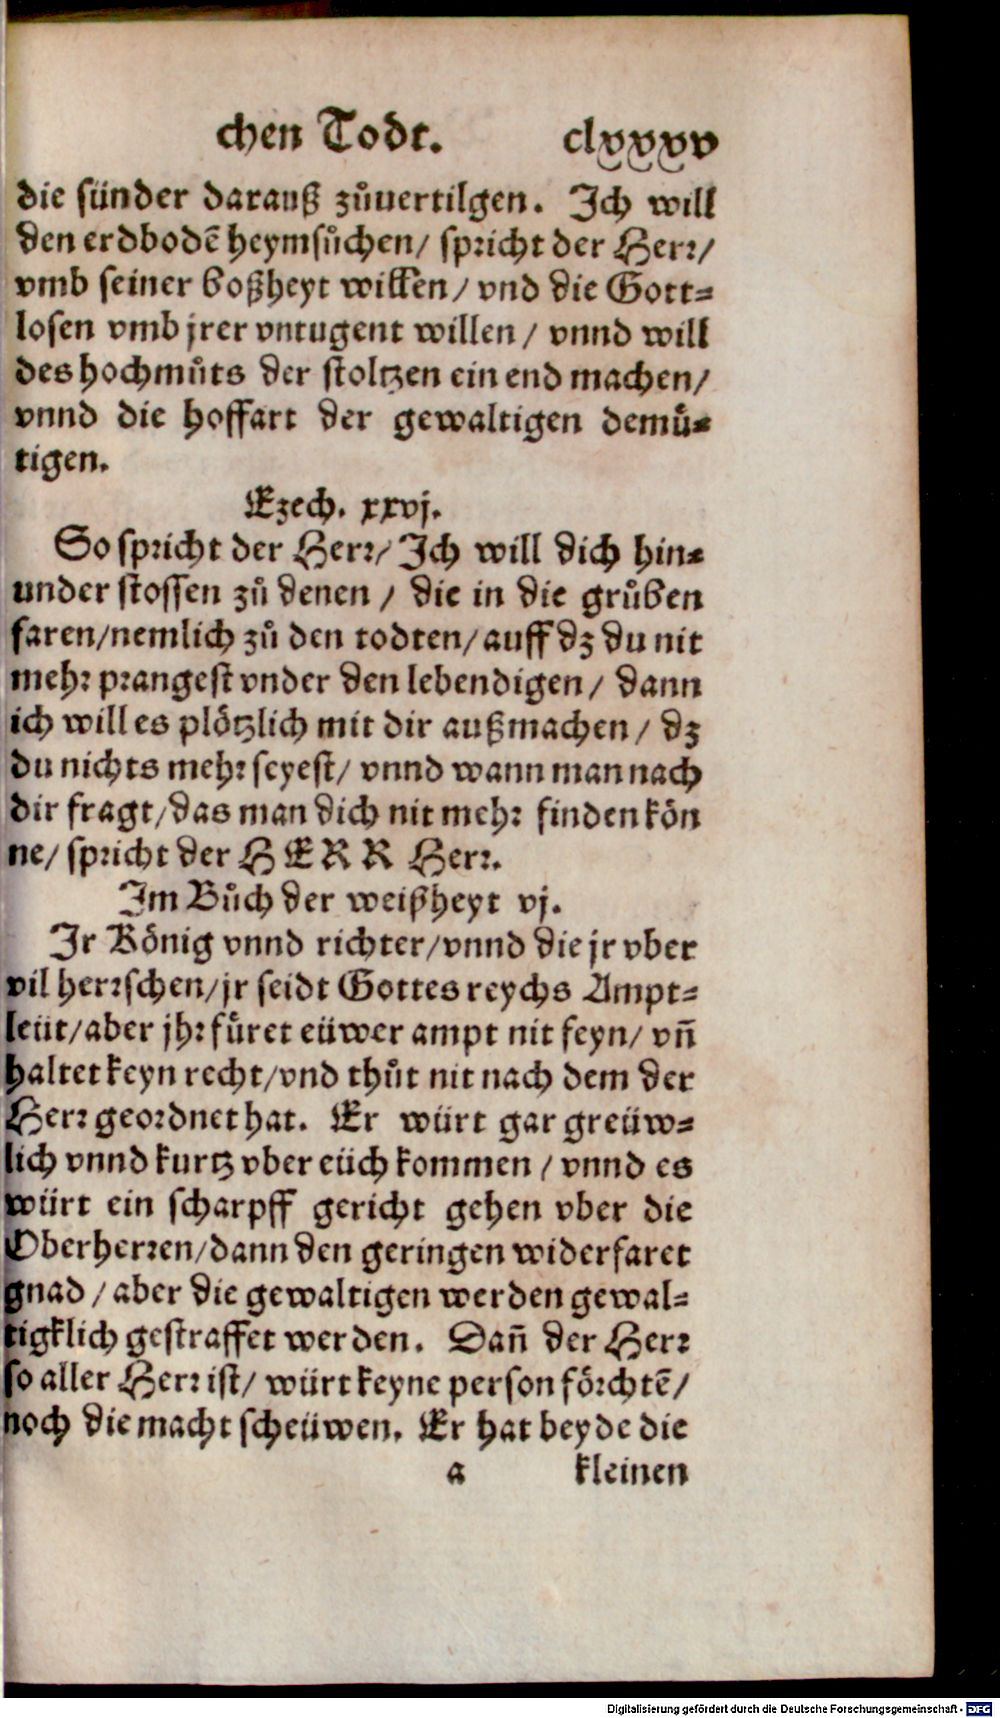 chen Todt. clxxxv
die sünder darauß zůuertilgen. Ich will
den erdbodē heymsůchen/ spricht der Herr/
vmb seiner boßheyt willen/ vnd die Gott=
losen vmb jrer vntugent willen/ vnnd will
des hochmůts der stoltzen ein end machen/
vnnd die hoffart der gewaltigen demů=
tigen.
Ezech. xxvj.
So spricht der Herr/ Ich will dich hin=
under stossen zů denen / die in die grůben
faren/nemlich zů den todten/ auff dz du nit
mehr prangest vnder den lebendigen/ dann
ich will es plötzlich mit dir außmachen/ dz
du nichts mehr seyest/ vnnd wann man nach
dir fragt/das man dich nit mehr finden kön
ne/ spricht der HERR Herr.
Im Bůch der weißheyt vj.
Ir König vnnd richter/vnnd die jr vber
vil herrschen/jr seidt Gottes reychs Ampt=
leüt/aber jhr fůret eüwer ampt nit feyn/ vñ
haltet keyn recht/vnd thůt nit nach dem der
Herr geordnet hat. Er würt gar greüw=
lich vnnd kurtz vber eüch kommen / vnnd es
würt ein scharpff gericht gehen vber die
Oberherren/dann den geringen widerfaret
gnad / aber die gewaltigen werden gewal=
tigklich gestraffet werden. Dañ der Herr
so aller Herr ist/ würt keyne person förchtē/
noch die macht scheüwen. Er hat beyde die
a kleinen
Digitalisierung gefördert durch die Deutsche Forschungsgemeinschaft - DFG